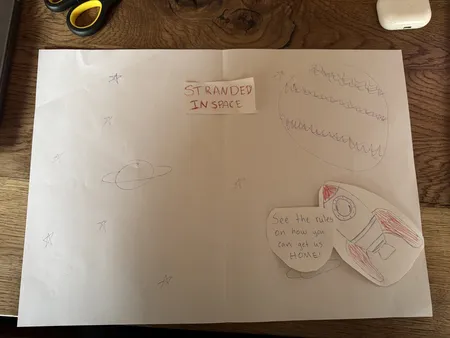 STRANDED
IN SPACE
See the rules
on how you
can get us
HOME!